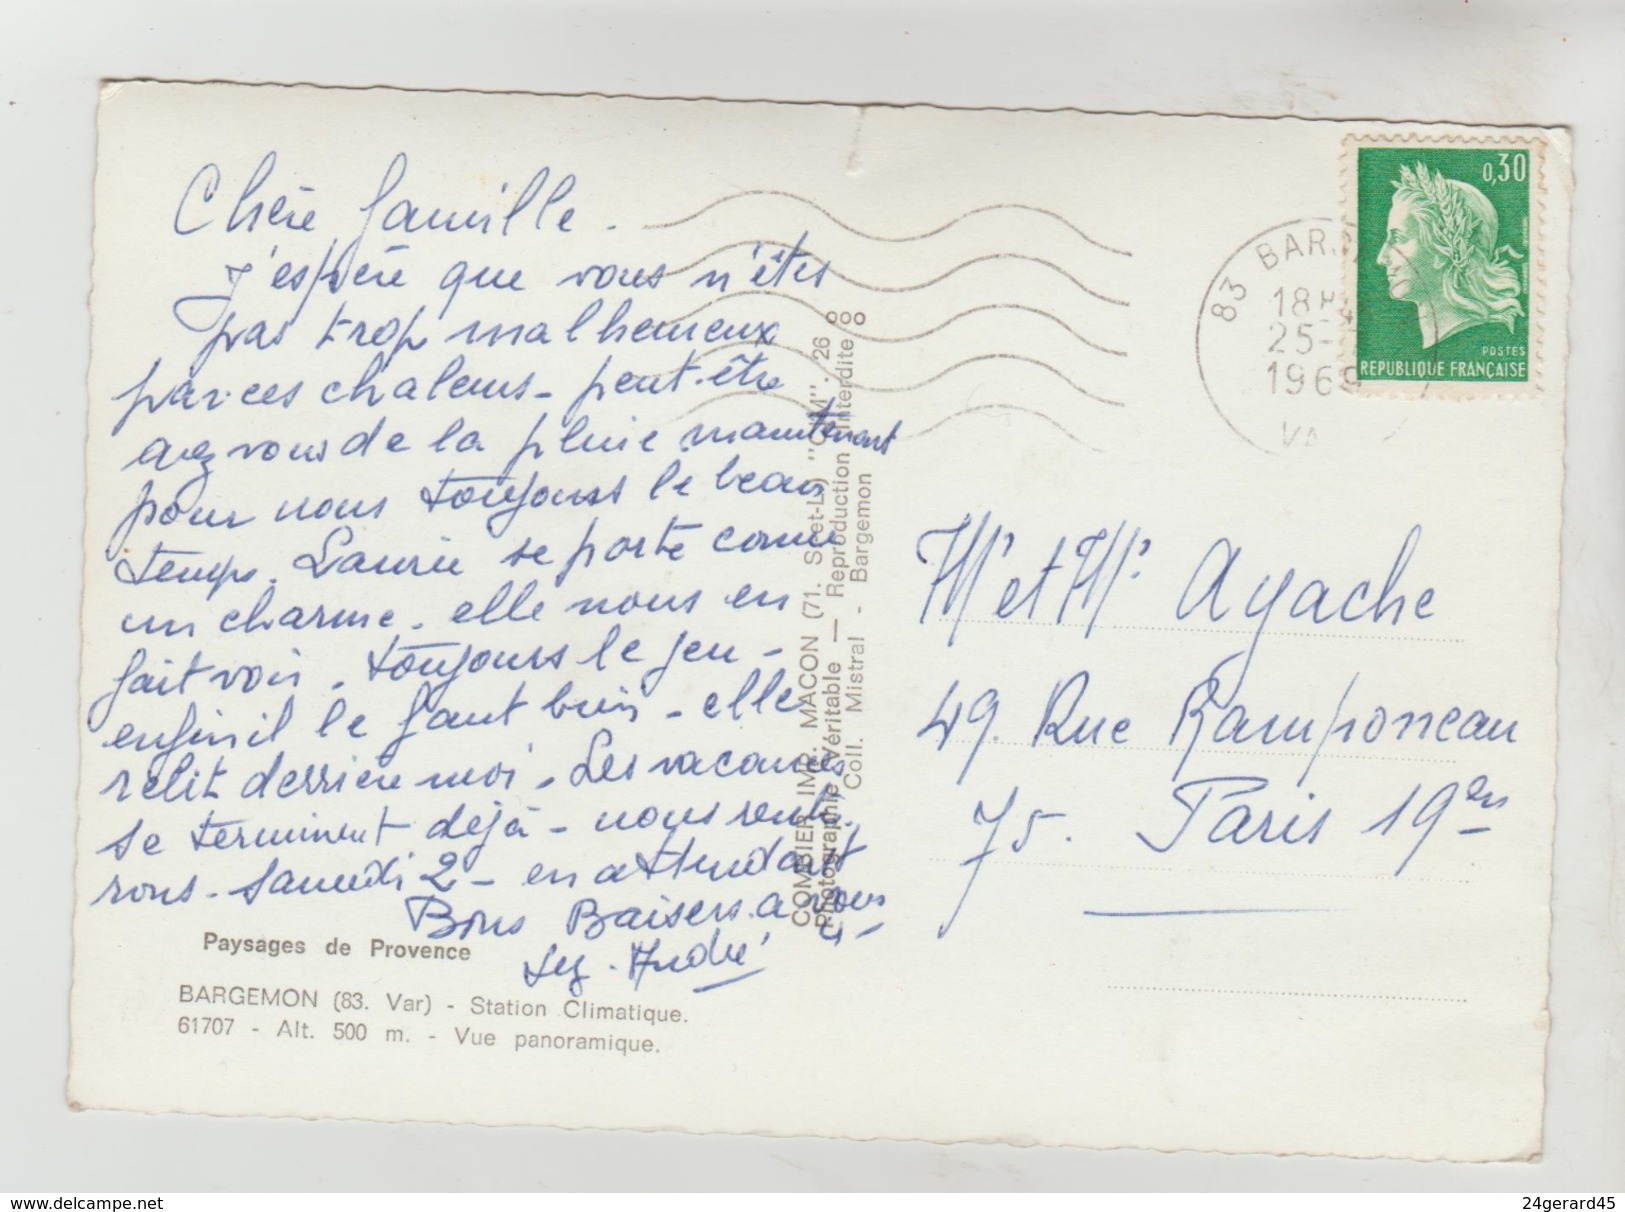 Chère famille.
J'espère que vous n'êtes
pas trop malheureux
par ces chaleurs - peut-être
avez vous de la pluie maintenant
pour nous toujours le beau
temps. Laurie se porte comme
un charme. elle nous en
fait voir. toujours le jeu -
enfin il le faut bien - elle
relit derrière moi. Les vacances
se terminent déjà - nous rent-
rons. Samedi 2 - en attendant
Bons Baisers. a vous
André
Paysages de Provence
BARGEMON (83. Var) - Station Climatique.
61707 - Alt. 500 m. - Vue panoramique.
COMBIER IMP. MACON (71. S.-et-L.) "CIM". 26
Photographie Véritable — Reproduction Interdite
Coll. Mistral - Bargemon
0,30
POSTES
REPUBLIQUE FRANÇAISE
83 BAR
18H
25-
1969
VA
Mr et Me Ayache
49. Rue Ramponeau
75. Paris 19en
www.delcampe.net
24gerard45